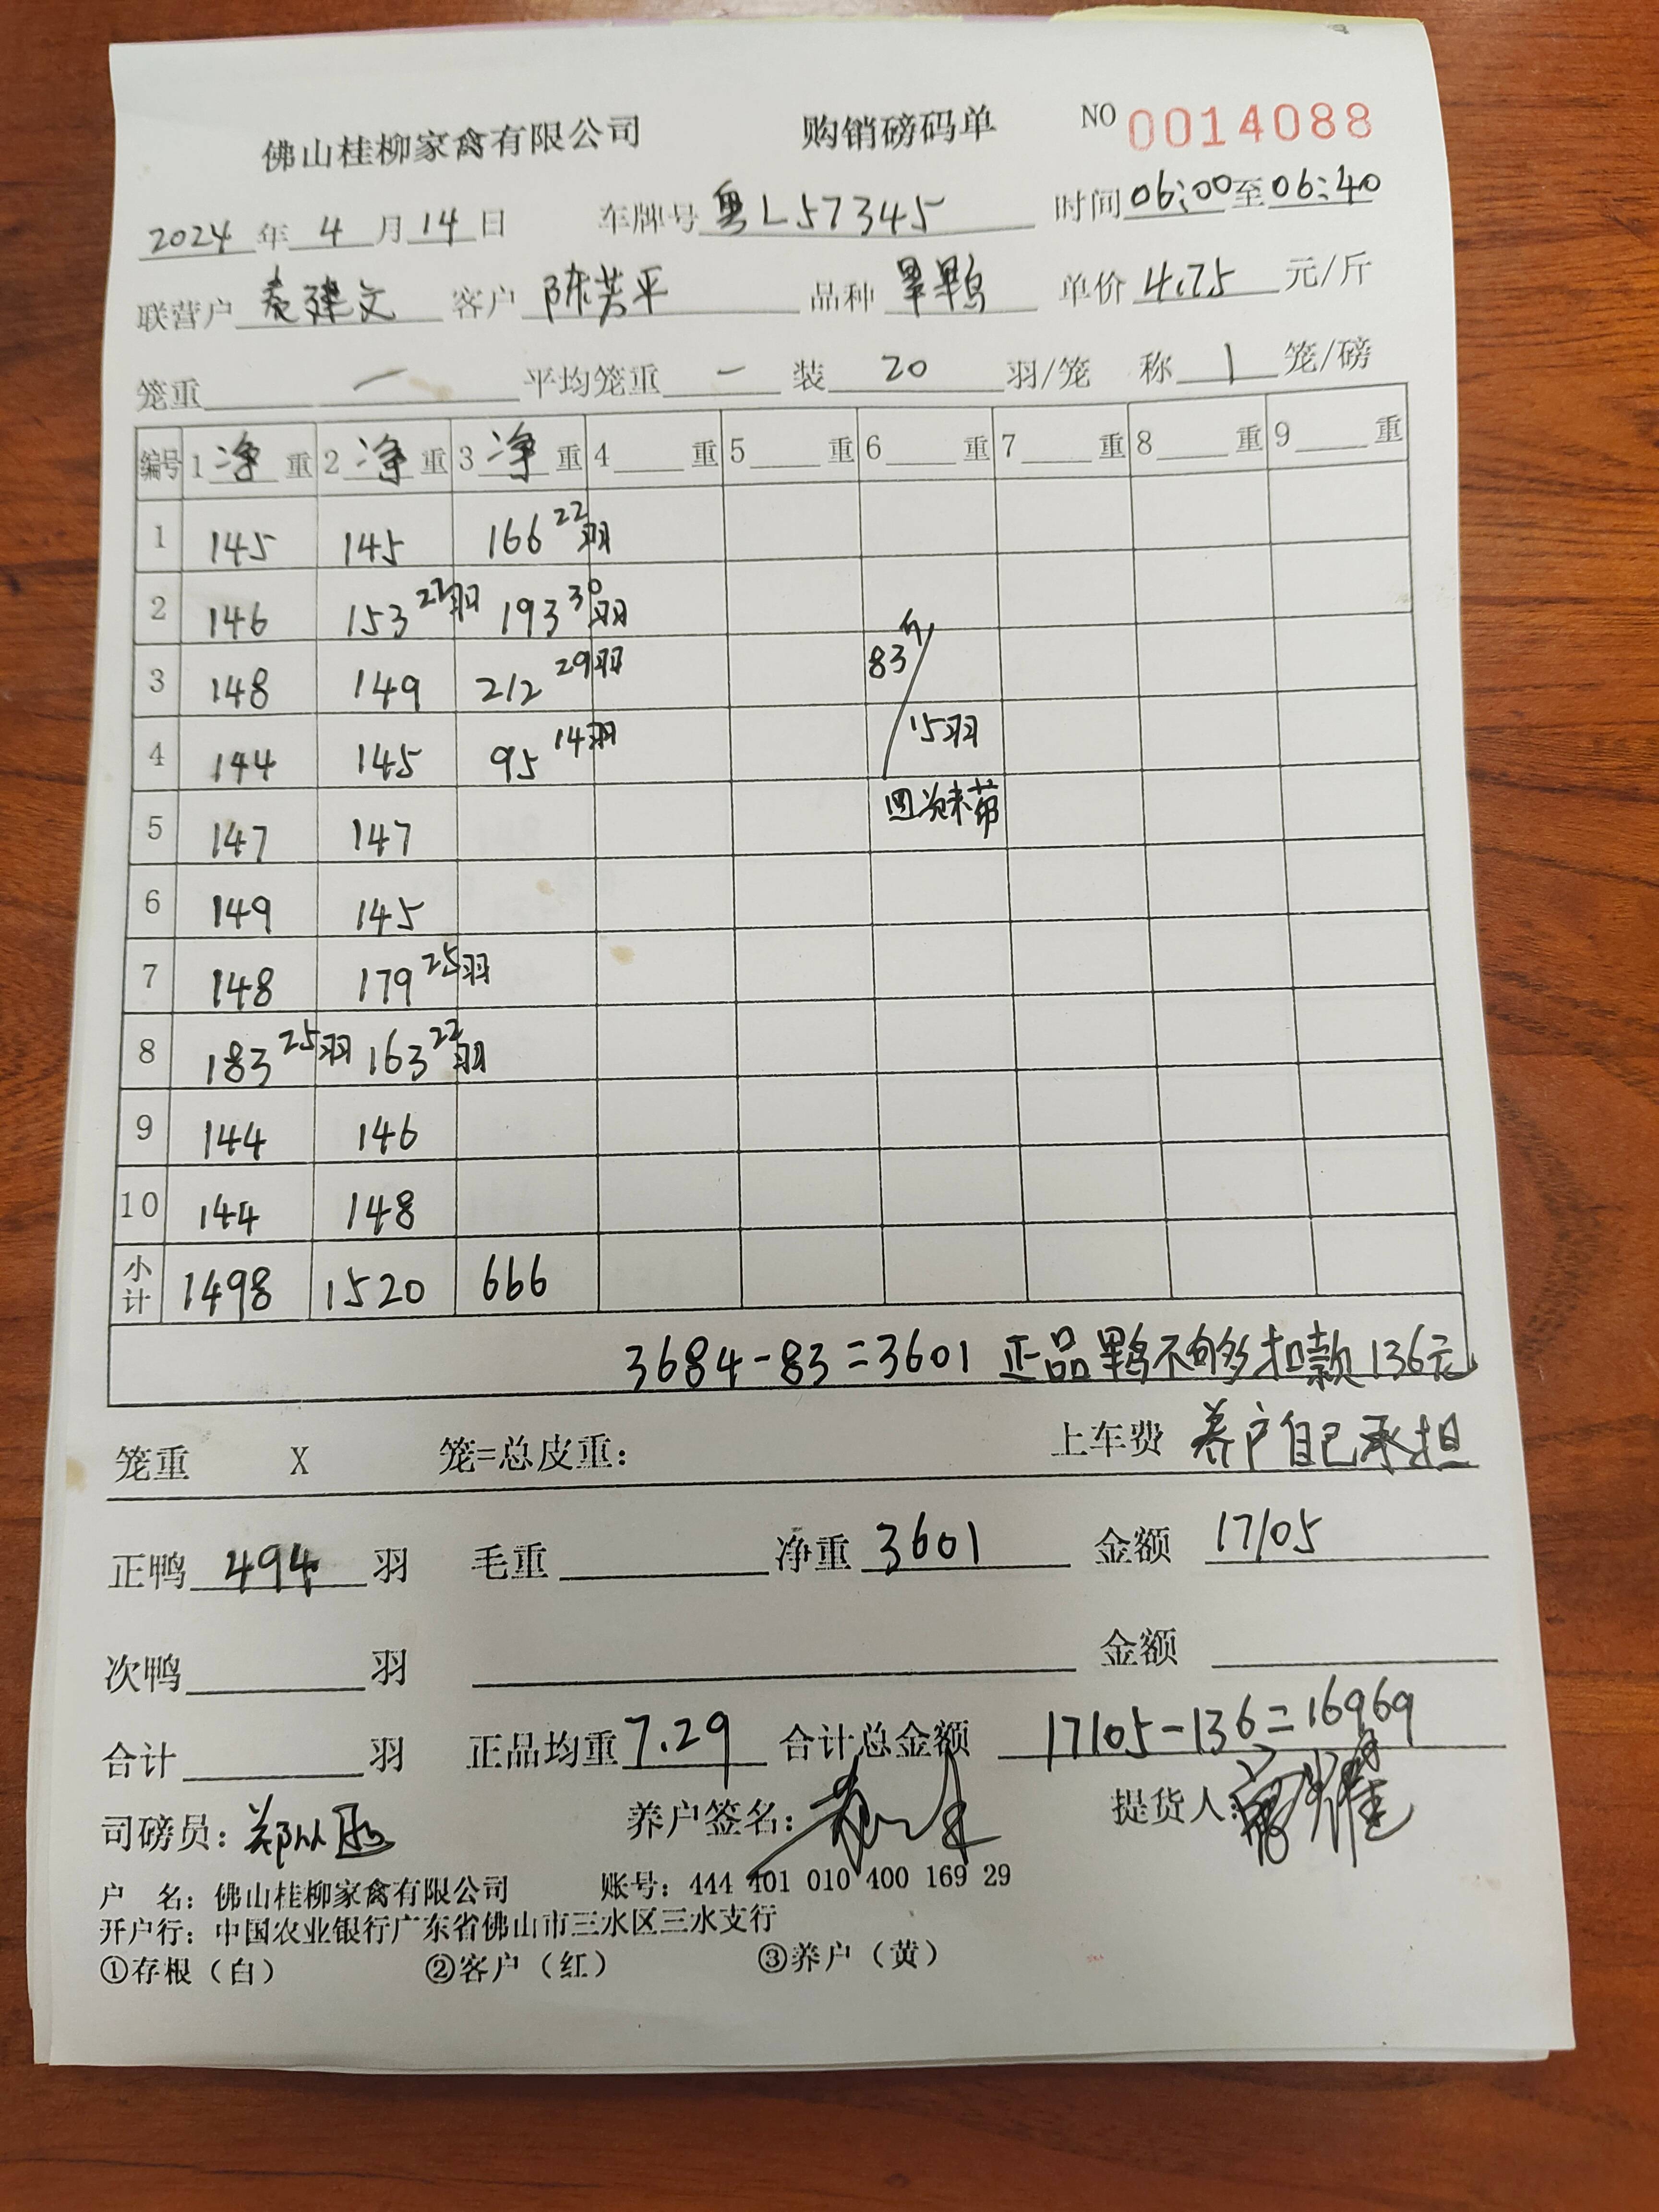 佛山桂柳家禽有限公司 购销磅码单 NO 0014088
2024年4月14日 车牌号粤L57345 时间06:00至06:40
联营户 建文 客户 陈芸平 品种 单价4.75元/斤
笼重 一 平均笼重 一 装 20 羽/笼 称 1 笼/磅
编号 1净重 2净重 3净重 4重 5重 6重 7重 8重 9重
1 145 145 166 22羽
2 146 153 羽 193 30羽
3 148 149 212 29羽 83斤
4 144 145 95 14羽 15羽
5 147 147
6 149 145
7 148 179 25羽
8 183 25羽 163 22羽
9 144 146
10 144 148
小计 1498 1520 666
3684-83=3601 正品 不够多扣款136元
笼重 X 笼=总皮重: 上车费 养户自己承担
正鸭 494 羽 毛重 净重 3601 金额 17105
次鸭 羽 金额
合计 羽 正品均重 7.29 合计总金额 17105-136=16969
司磅员: 养户签名: 提货人:
户 名: 佛山桂柳家禽有限公司 账号: 444 401 010 400 169 29
开户行: 中国农业银行广东省佛山市三水区三水支行
①存根(白) ②客户(红) ③养户(黄)